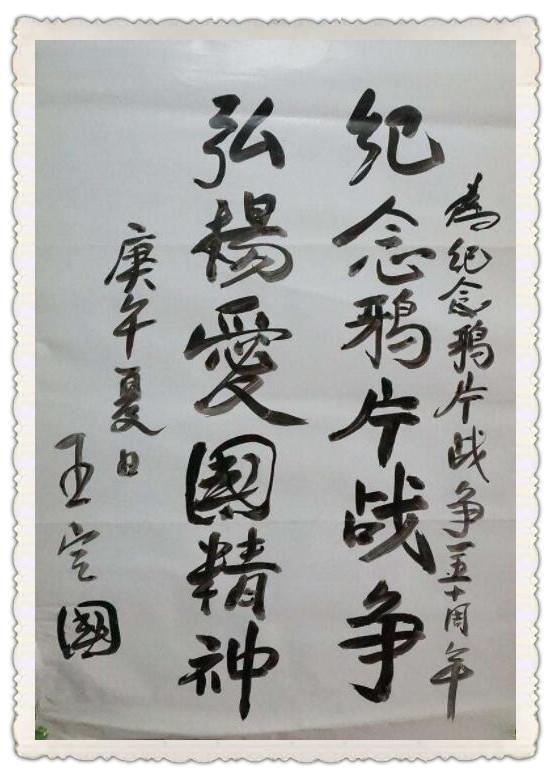 為纪念鴉片战争一百五十周年
纪念鴉片战争
弘楊愛國精神
庚午夏日
王定國